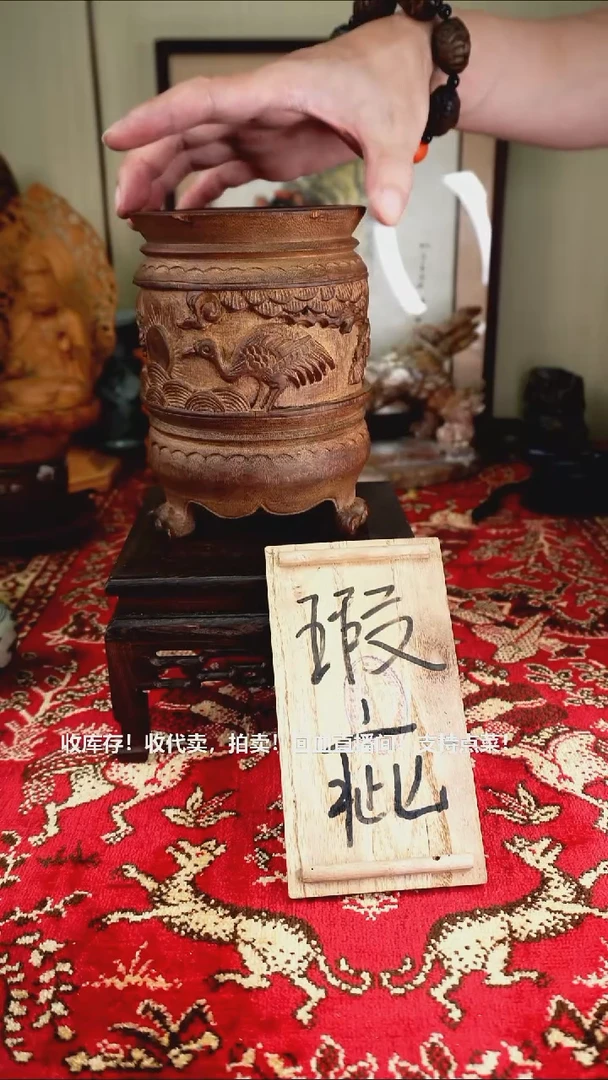 瑕
疵
收库存！收代卖，拍卖！回血直播间！ 支持点菜！